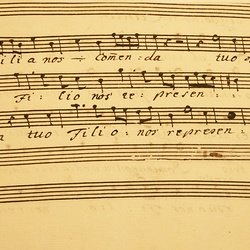 ilia nos ÷ Comen : da tuo
Fi : lio nos re : presen
tuo Filio : nos represen :